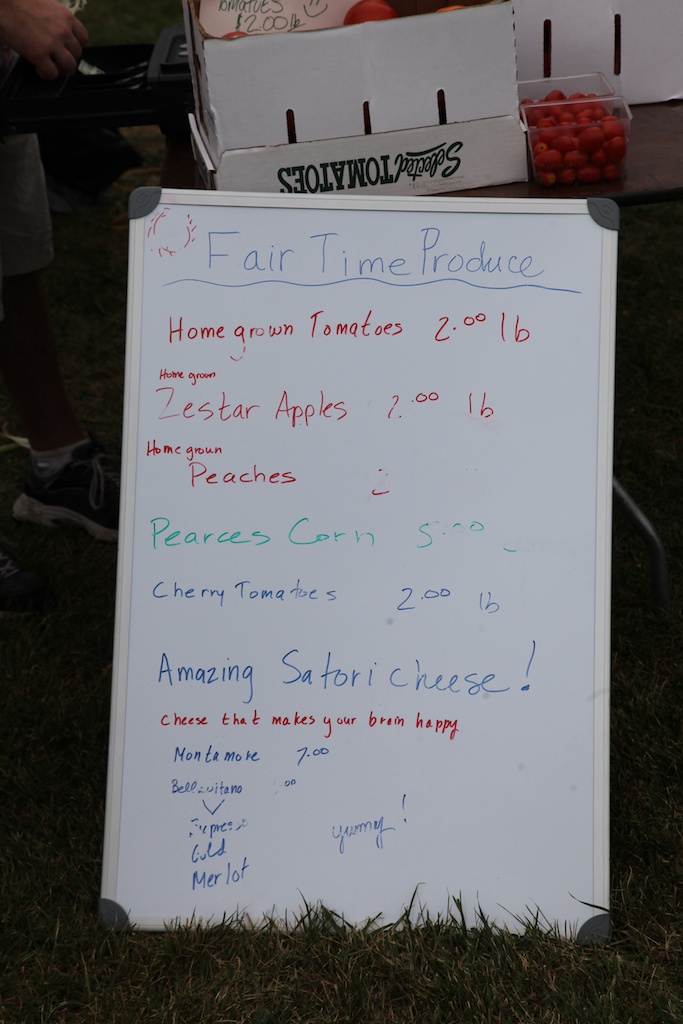 Tomatoes
$2.00 lb
Selected TOMATOES
Fair Time Produce
Home grown Tomatoes 2.00 lb
Home grown
Zestar Apples 2.00 lb
Home grown
Peaches 2
Pearces Corn 5.00
Cherry Tomatoes 2.00 lb
Amazing Satori cheese!
Cheese that makes your brain happy
Montamore 7.00
Bellavitano .00
Gold
Merlot
yummy!